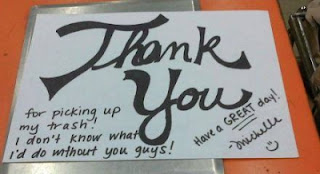 Thank
You
for picking up
my trash!
I don't know what
I'd do without you guys!
Have a GREAT day!
-Michelle